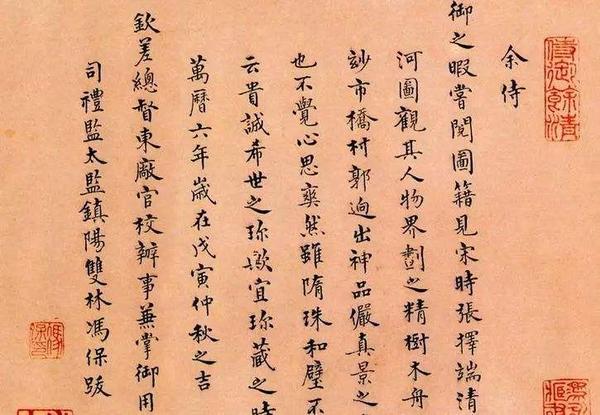 余侍
御之暇嘗閱圖籍見宋時張擇端清
河圖觀其人物界劃之精樹木舟
妙市橋村郭逈出神品儼真景之
也不覺心思爽然雖隋珠和璧不
云貴誠希世之珍歟宜珍藏之時
萬曆六年歲在戊寅仲秋之吉
欽差總督東廠官校辦事兼掌御用
司禮監太監鎮陽雙林馮保跋